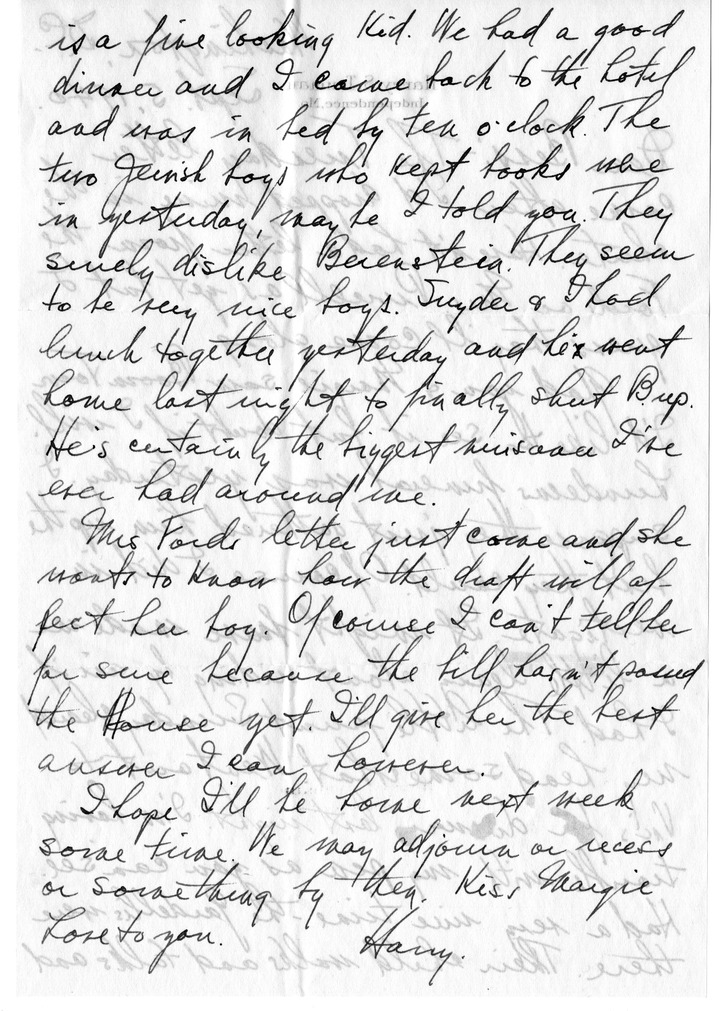 is a fine looking Kid. We had a good
dinner and I came back to the hotel
and was in bed by ten o'clock. The
two Jewish boys who kept books were
in yesterday, maybe I told you. They
surely dislike Berenstein. They seem
to be very nice boys. Snyder & I had
lunch together yesterday and he went
home last night to finally shut Bup.
He's certainly the biggest nuisance I've
ever had around me.
Mrs Fords letter just come and she
wants to know how the draft will af-
fect her boy. Of course I can't tell her
for sure because the bill hasn't passed
the House yet. I'll give her the best
answer I can however.
I hope I'll be home next week
some time. We may adjourn or recess
or something by then. Kiss Margie
Love to you. Harry.